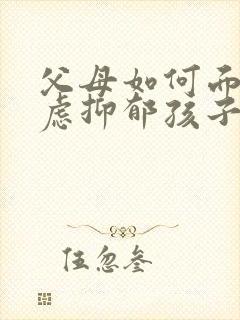 父母如何而
虑抑郁孩子
伍忽叁